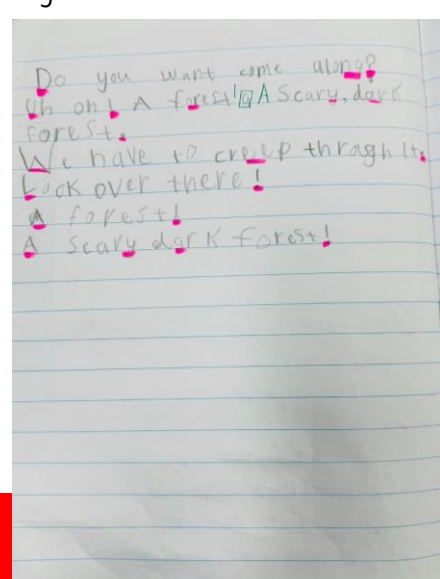 Do you want come along?
Uh oh! A forest! a A Scary, dark
forest.
We have to creep thragh it.
Look over there!
A forest!
A Scary dark forest!